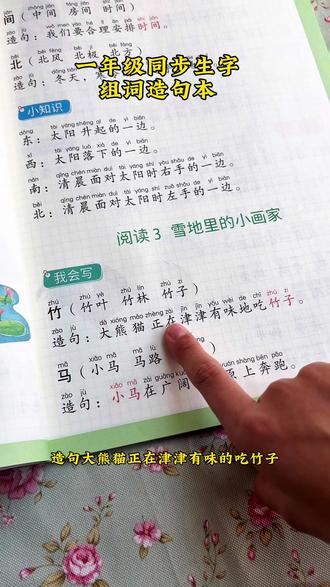 间（中间 房间 时间）
造句：我们要合理安排时间。
běi běi fēng běi jí běi fāng
北（北风 北极 北方）
造句：冬天，
一年级同步生字
组词造句本
小知识
dōng tài yáng shēng qǐ de yì biān
东：太阳升起的一边。
xī tài yáng luò xià de yì biān
西：太阳落下的一边。
nán qīng chén miàn duì tài yáng shí yòu shǒu de yì biān
南：清晨面对太阳时右手的一边。
běi qīng chén miàn duì tài yáng shí zuǒ shǒu de yì biān
北：清晨面对太阳时左手的一边。
阅读3 雪地里的小画家
我会写
zhú zhú yè zhú lín zhú zi
竹（竹叶 竹林 竹子）
zào jù dà xióng māo zhèng zài jīn jīn yǒu wèi de chī zhú zi
造句：大熊猫正在津津有味地吃竹子。
mǎ xiǎo mǎ mǎ lù
马（小马 马路
zào jù xiǎo mǎ zài guǎng kuò
造句：小马在广阔 上奔跑。
造句大熊猫正在津津有味的吃竹子